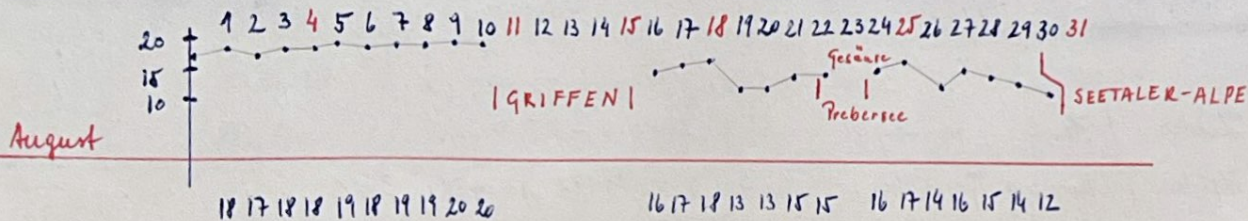 1 2 3 4 5 6 7 8 9 10 11 12 13 14 15 16 17 18 19 20 21 22 23 24 25 26 27 28 29 30 31
20
15
10
Gesäuse
|GRIFFEN|
Prebersee
SEETALER-ALPE
August
18 17 18 18 19 18 19 19 20 20 16 17 18 13 13 15 15 16 17 14 16 15 14 12